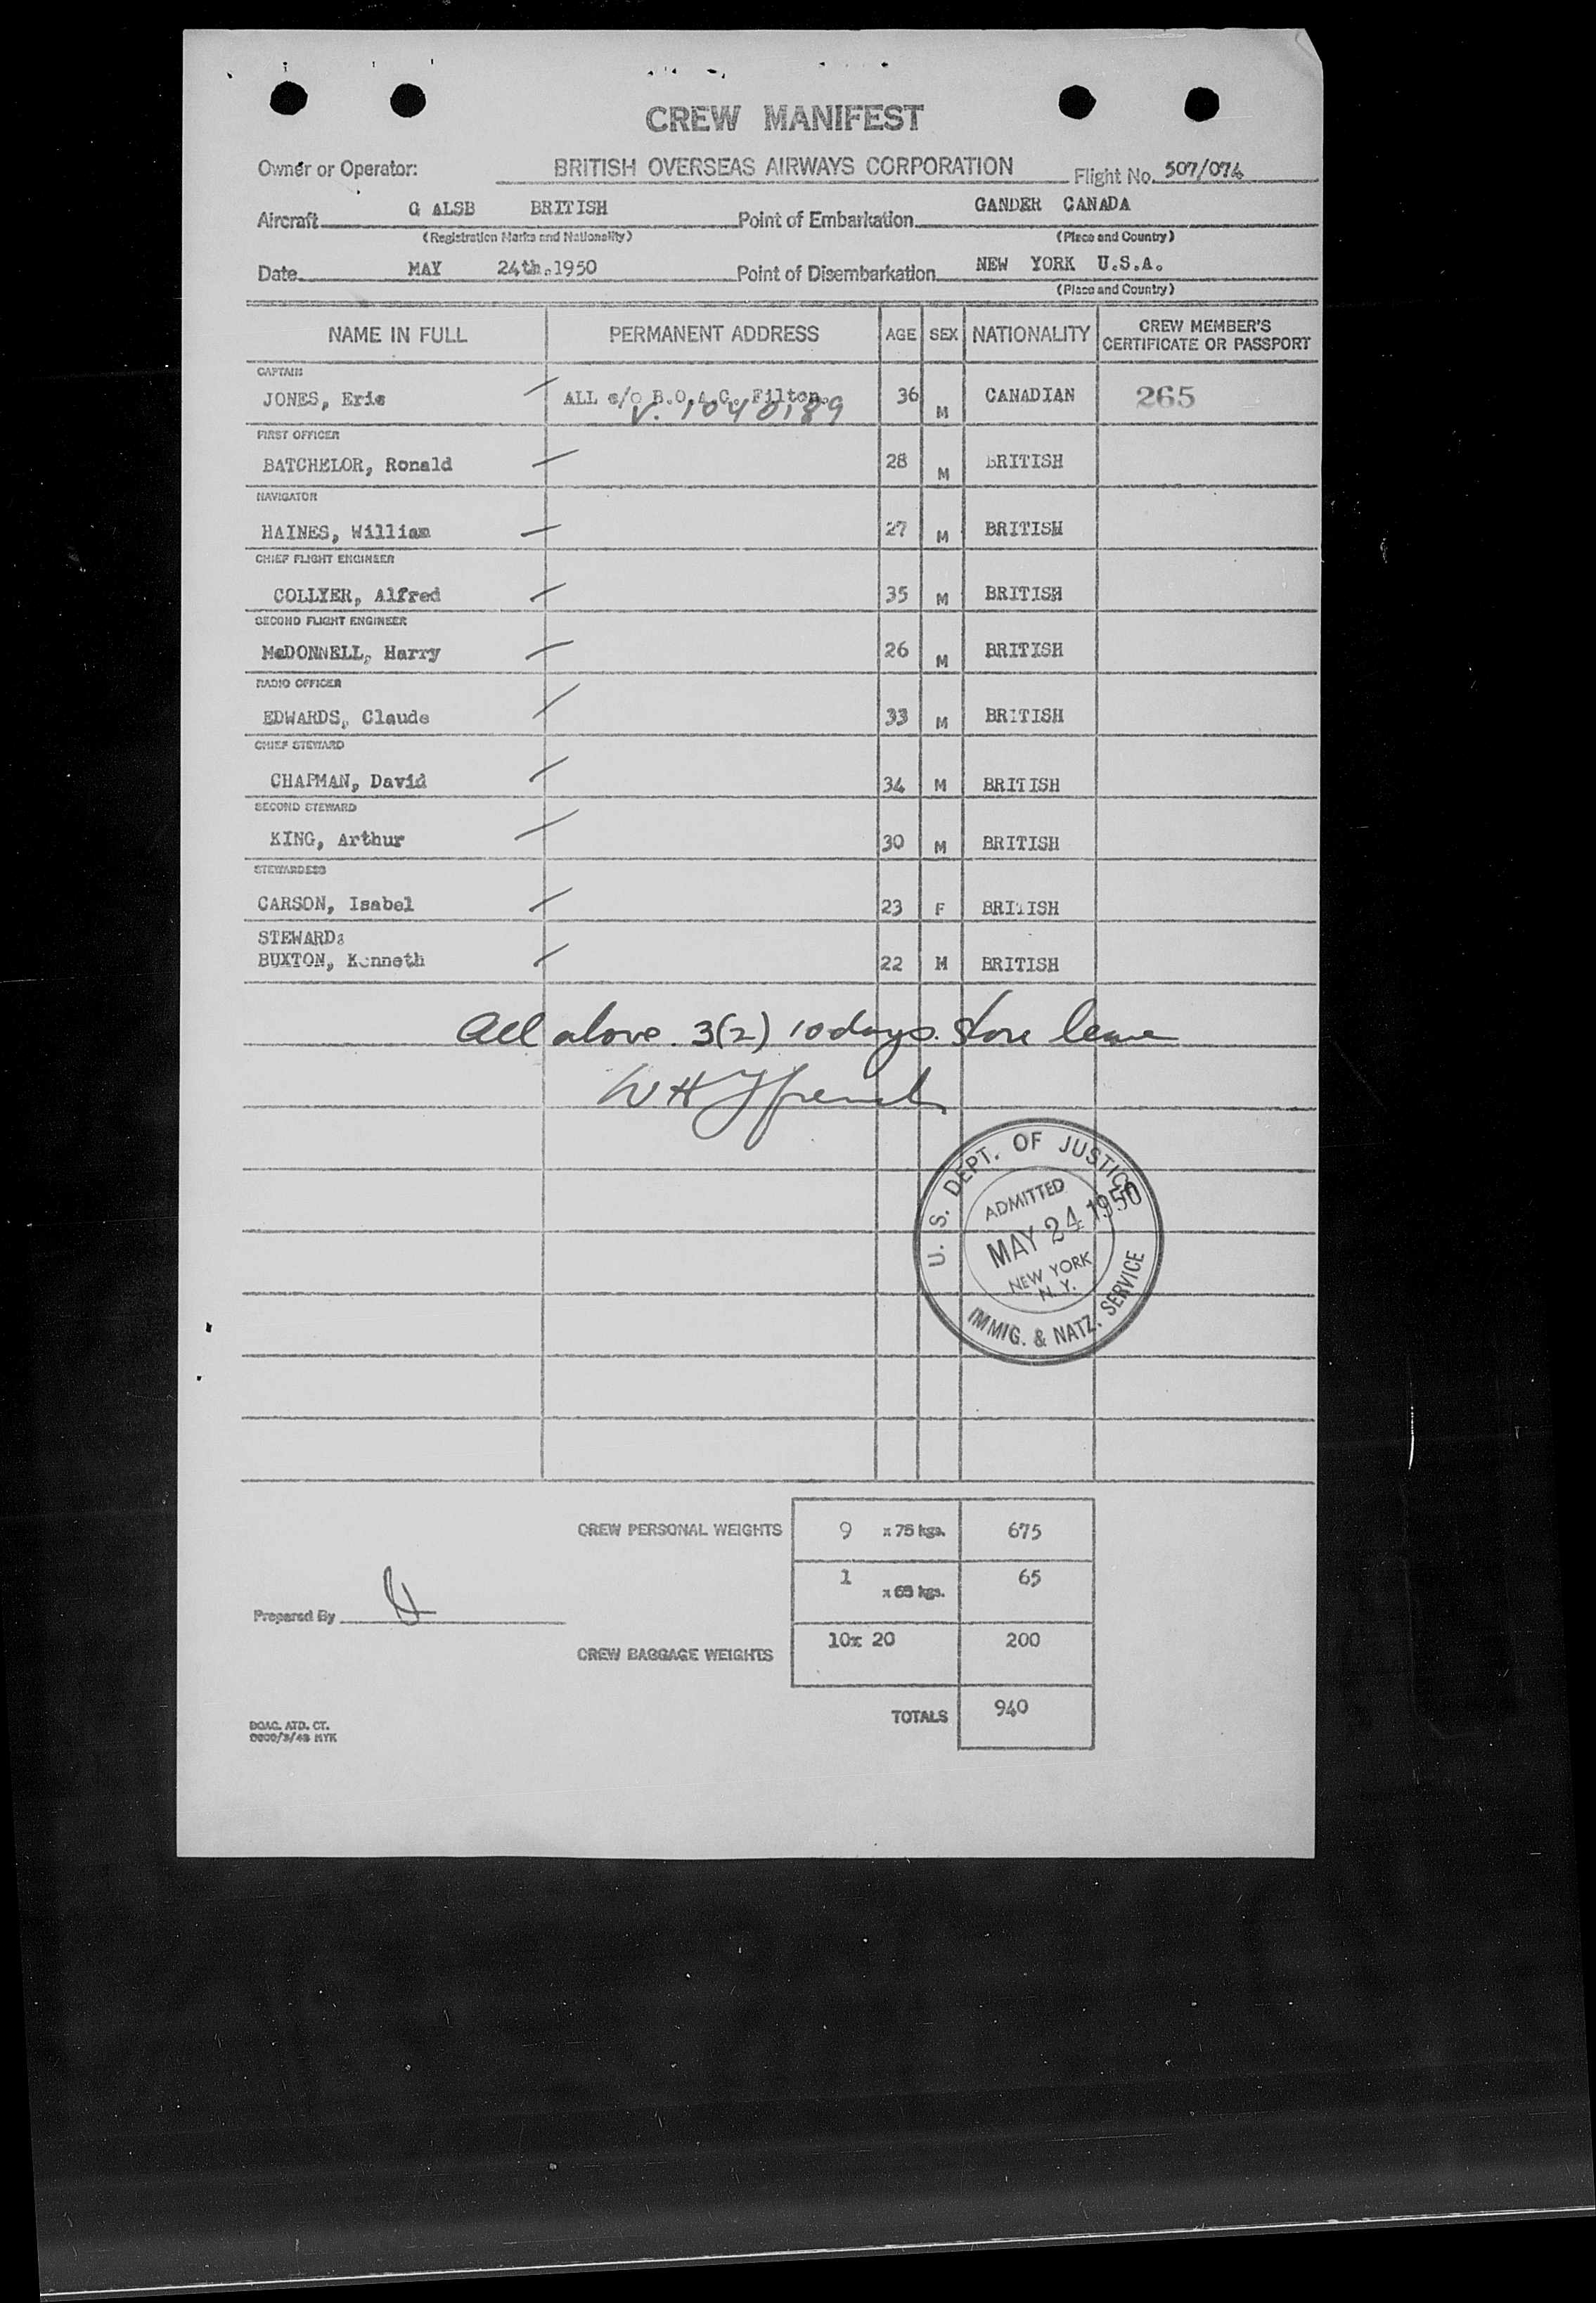 CREW MANIFEST
Owner or Operator: BRITISH OVERSEAS AIRWAYS CORPORATION Flight No. 507/074
Aircraft G ALSB BRITISH Point of Embarkation GANDER CANADA
(Registration Marks and Nationality) (Place and Country)
Date MAY 24th.1950 Point of Disembarkation NEW YORK U.S.A.
(Place and Country)
NAME IN FULL PERMANENT ADDRESS AGE SEX NATIONALITY CREW MEMBER'S CERTIFICATE OR PASSPORT
CAPTAIN
JONES, Eric ALL c/o B.O.A.C. Filton. 36 M CANADIAN 265
V. 1040189
FIRST OFFICER
BATCHELOR, Ronald 28 M BRITISH
NAVIGATOR
HAINES, William 27 M BRITISH
CHIEF FLIGHT ENGINEER
COLLYER, Alfred 35 M BRITISH
SECOND FLIGHT ENGINEER
McDONNELL, Harry 26 M BRITISH
RADIO OFFICER
EDWARDS, Claude 33 M BRITISH
CHIEF STEWARD
CHAPMAN, David 34 M BRITISH
SECOND STEWARD
KING, Arthur 30 M BRITISH
STEWARDESS
CARSON, Isabel 23 F BRITISH
STEWARD:
BUXTON, Kenneth 22 M BRITISH
All above 3(2) 10 days. shore leave
U. S. DEPT. OF JUSTICE
ADMITTED
MAY 24 1950
NEW YORK
N. Y.
IMMIG. & NATZ. SERVICE
CREW PERSONAL WEIGHTS 9 x 75 kgs. 675
1 x 65 kgs. 65
Prepared By
CREW BAGGAGE WEIGHTS 10x 20 200
TOTALS 940
BOAC. ATD. CT.